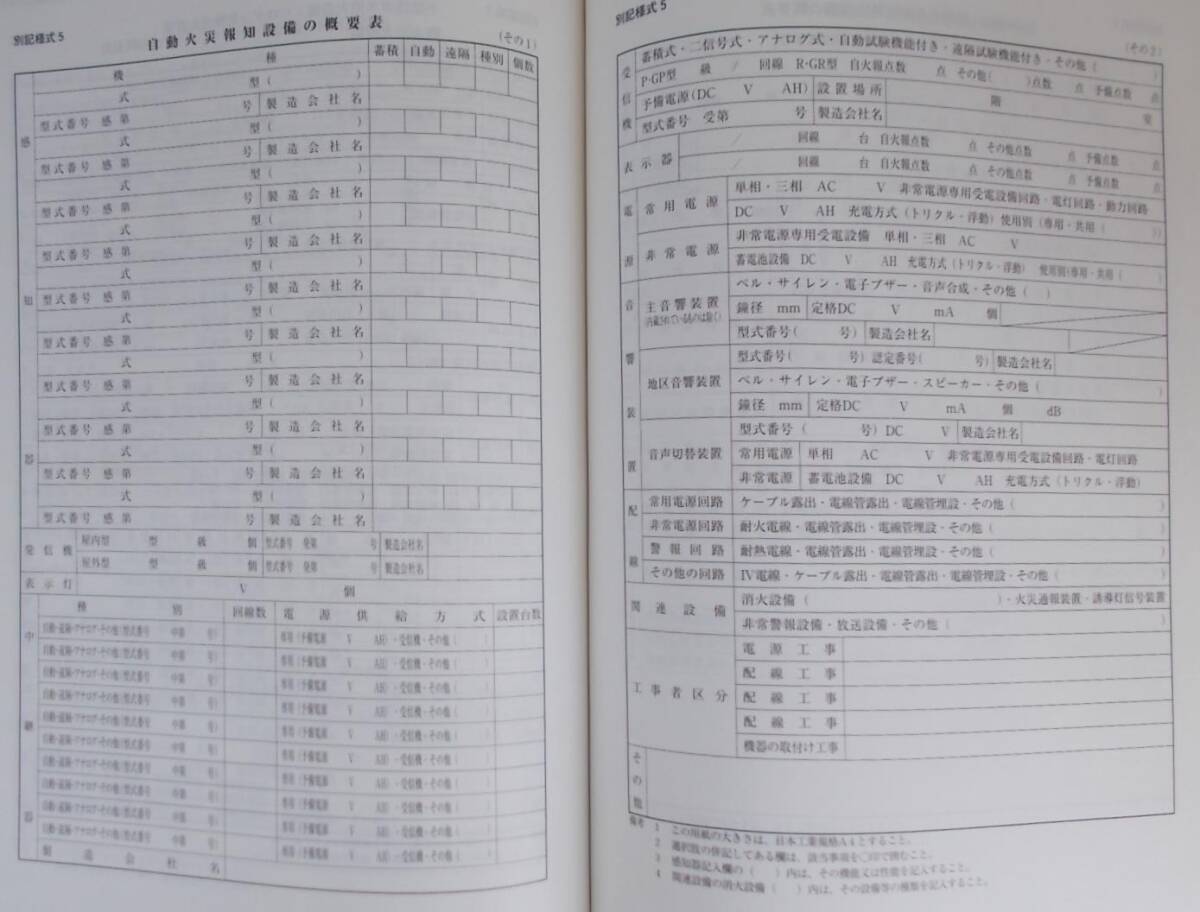 別記様式5
自動火災報知設備の概要表
(その1)
感知器
機 種 蓄積 自動 遠隔 種別 個数
式 型( )
型式番号 感 第 号 製造会社名
式 型( )
型式番号 感 第 号 製造会社名
式 型( )
型式番号 感 第 号 製造会社名
式 型( )
型式番号 感 第 号 製造会社名
式 型( )
型式番号 感 第 号 製造会社名
式 型( )
型式番号 感 第 号 製造会社名
式 型( )
型式番号 感 第 号 製造会社名
式 型( )
型式番号 感 第 号 製造会社名
式 型( )
型式番号 感 第 号 製造会社名
式 型( )
型式番号 感 第 号 製造会社名
発信機
屋内型 型 級 個 型式番号 発第 号 製造会社名
屋外型 型 級 個 型式番号 発第 号 製造会社名
表示灯 V 個
中継器
種 別 回線数 電源供給方式 設置台数
自動・遠隔・アナログ・その他(型式番号 中第 号) 専用(予備電源 V AH)・受信機・その他( )
自動・遠隔・アナログ・その他(型式番号 中第 号) 専用(予備電源 V AH)・受信機・その他( )
自動・遠隔・アナログ・その他(型式番号 中第 号) 専用(予備電源 V AH)・受信機・その他( )
自動・遠隔・アナログ・その他(型式番号 中第 号) 専用(予備電源 V AH)・受信機・その他( )
自動・遠隔・アナログ・その他(型式番号 中第 号) 専用(予備電源 V AH)・受信機・その他( )
自動・遠隔・アナログ・その他(型式番号 中第 号) 専用(予備電源 V AH)・受信機・その他( )
自動・遠隔・アナログ・その他(型式番号 中第 号) 専用(予備電源 V AH)・受信機・その他( )
自動・遠隔・アナログ・その他(型式番号 中第 号) 専用(予備電源 V AH)・受信機・その他( )
自動・遠隔・アナログ・その他(型式番号 中第 号) 専用(予備電源 V AH)・受信機・その他( )
製造会社名
別記様式5
(その2)
受信機
蓄積式・二信号式・アナログ式・自動試験機能付き・遠隔試験機能付き・その他( )
P・GP型 級 / 回線 R・GR型 自火報点数 点 その他( )点数 点 予備点数 点
予備電源(DC V AH) 設置場所 階 室
型式番号 受第 号 製造会社名
表示器
/ 回線 台 自火報点数 点 その他点数 点 予備点数 点
/ 回線 台 自火報点数 点 その他点数 点 予備点数 点
電源
常用電源 単相・三相 AC V 非常電源専用受電設備回路・電灯回路・動力回路
DC V AH 充電方式(トリクル・浮動) 使用別(専用・共用( ))
非常電源 非常電源専用受電設備 単相・三相 AC V
蓄電池設備 DC V AH 充電方式(トリクル・浮動) 使用別(専用・共用( )
音響装置
主音響装置 (内蔵されているものは除く) ベル・サイレン・電子ブザー・音声合成・その他( )
鐘径 mm 定格DC V mA 個
型式番号( 号) 製造会社名
地区音響装置 型式番号( 号) 認定番号( 号) 製造会社名
ベル・サイレン・電子ブザー・スピーカー・その他( )
鐘径 mm 定格DC V mA 個 dB
音声切替装置 型式番号( 号) DC V 製造会社名
常用電源 単相 AC V 非常電源専用受電設備回路・電灯回路
非常電源 蓄電池設備 DC V AH 充電方式(トリクル・浮動)
配線
常用電源回路 ケーブル露出・電線管露出・電線管埋設・その他( )
非常電源回路 耐火電線・電線管露出・電線管埋設・その他( )
警報回路 耐熱電線・電線管露出・電線管埋設・その他( )
その他の回路 IV電線・ケーブル露出・電線管露出・電線管埋設・その他( )
関連設備 消火設備( )・火災通報装置・誘導灯信号装置
非常警報設備・放送設備・その他( )
工事者区分
電源工事
配線工事
配線工事
配線工事
機器の取付け工事
その他
備考 1 この用紙の大きさは、日本工業規格A4とすること。
2 選択肢の併記してある欄は、該当事項を○印で囲むこと。
3 感知器記入欄の( )内は、その機能又は性能を記入すること。
4 関連設備の消火設備( )内は、その設備等の種類を記入すること。